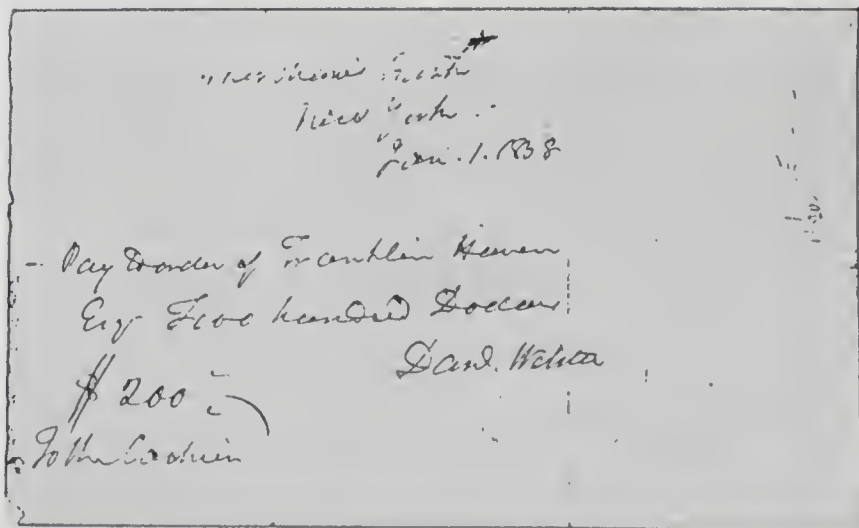 Merchants Bank
New York
Jan. 1. 1838
Pay to order of Franklin Haven
Esqr Two hundred Dollars
Danl. Webster
$ 200
To the Cashier